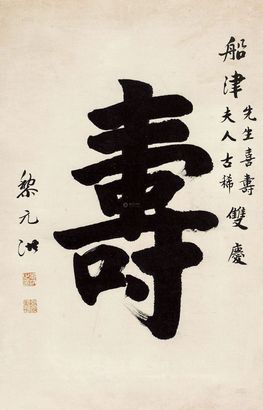 船津先生喜壽夫人古稀雙慶
壽
黎元洪